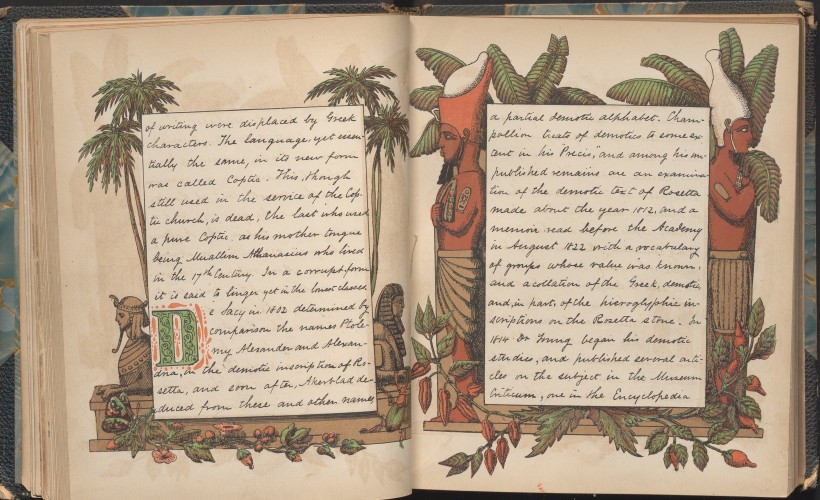 of writing were displaced by Greek
characters. The language, yet essen-
tially the same, in its new form
was called Coptic. This, though
still used in the service of the Cop-
tic church, is dead, the last who used
a pure Coptic as his mother tongue
being Muallim Athanasius who lived
in the 17th Century. In a corrupt form
it is said to linger yet in the lowest classes
De Sacy in 1802 determined by
comparison the names Ptole-
my Alexander and Alexan-
dria, in the demotic inscription of Ro-
setta, and soon after, Akerblad de-
duced from these and other names
a partial demotic alphabet. Cham-
pollion treats of demotics to some ex-
tent in his "Precis", and among his un-
published remains are an examina-
tion of the demotic text of Rosetta
made about the year 1812, and a
memoir read before the Academy
in August 1822 with a vocabulary
of groups whose value was known,
and a collation of the Greek, demotic
and, in part, of the hieroglyphic in-
scriptions on the Rosetta stone. In
1814 Dr Young began his demotic
studies, and published several arti-
cles on the subject in the Museum
Criticum, one in the Encyclopedia